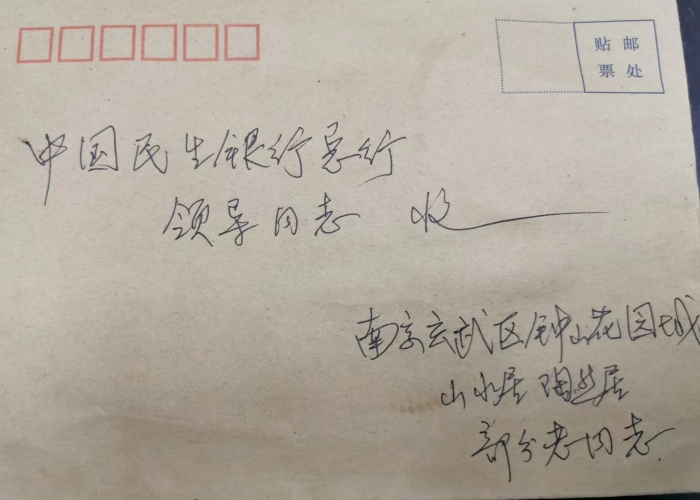 贴 邮
票 处
中国民生银行总行
领导同志 收
南京玄武区钟山花园城
山水居 陶然居
部分老同志